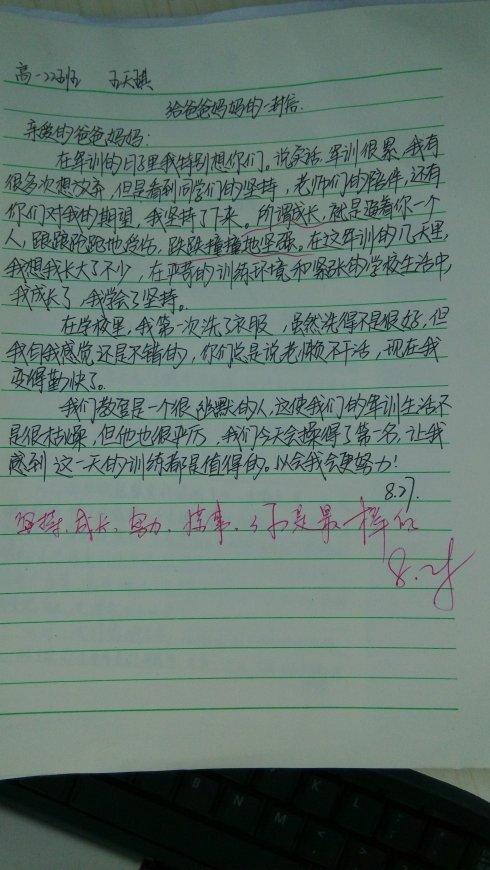 高一22班 王天琪
给爸爸妈妈的一封信
亲爱的爸爸妈妈:
在军训的日子里我特别想你们。说实话,军训很累,我有
很多次想放弃,但是看到同学们的坚持,老师们的陪伴,还有
你们对我的期望,我坚持了下来。所谓成长,就是逼着你一个
人,踉踉跄跄地受伤,跌跌撞撞地坚强。在这军训的几天里,
我想我长大了不少,在严苛的训练环境和紧张的学校生活中,
我成长了,我学会了坚持。
在学校里,我第一次洗了衣服,虽然洗得不是很好,但
我自我感觉还是不错的,你们总是说老懒不干活,现在我
变得勤快了。
我们教官是一个很幽默的人,这使我们的军训生活不
是很枯燥,但他也很严厉,我们今天会操得了第一名,让我
感到这一天的训练都是值得的。以会我会更努力!
8.27.
坚持、成长、努力、懂事,是最棒的
8.28
B N M